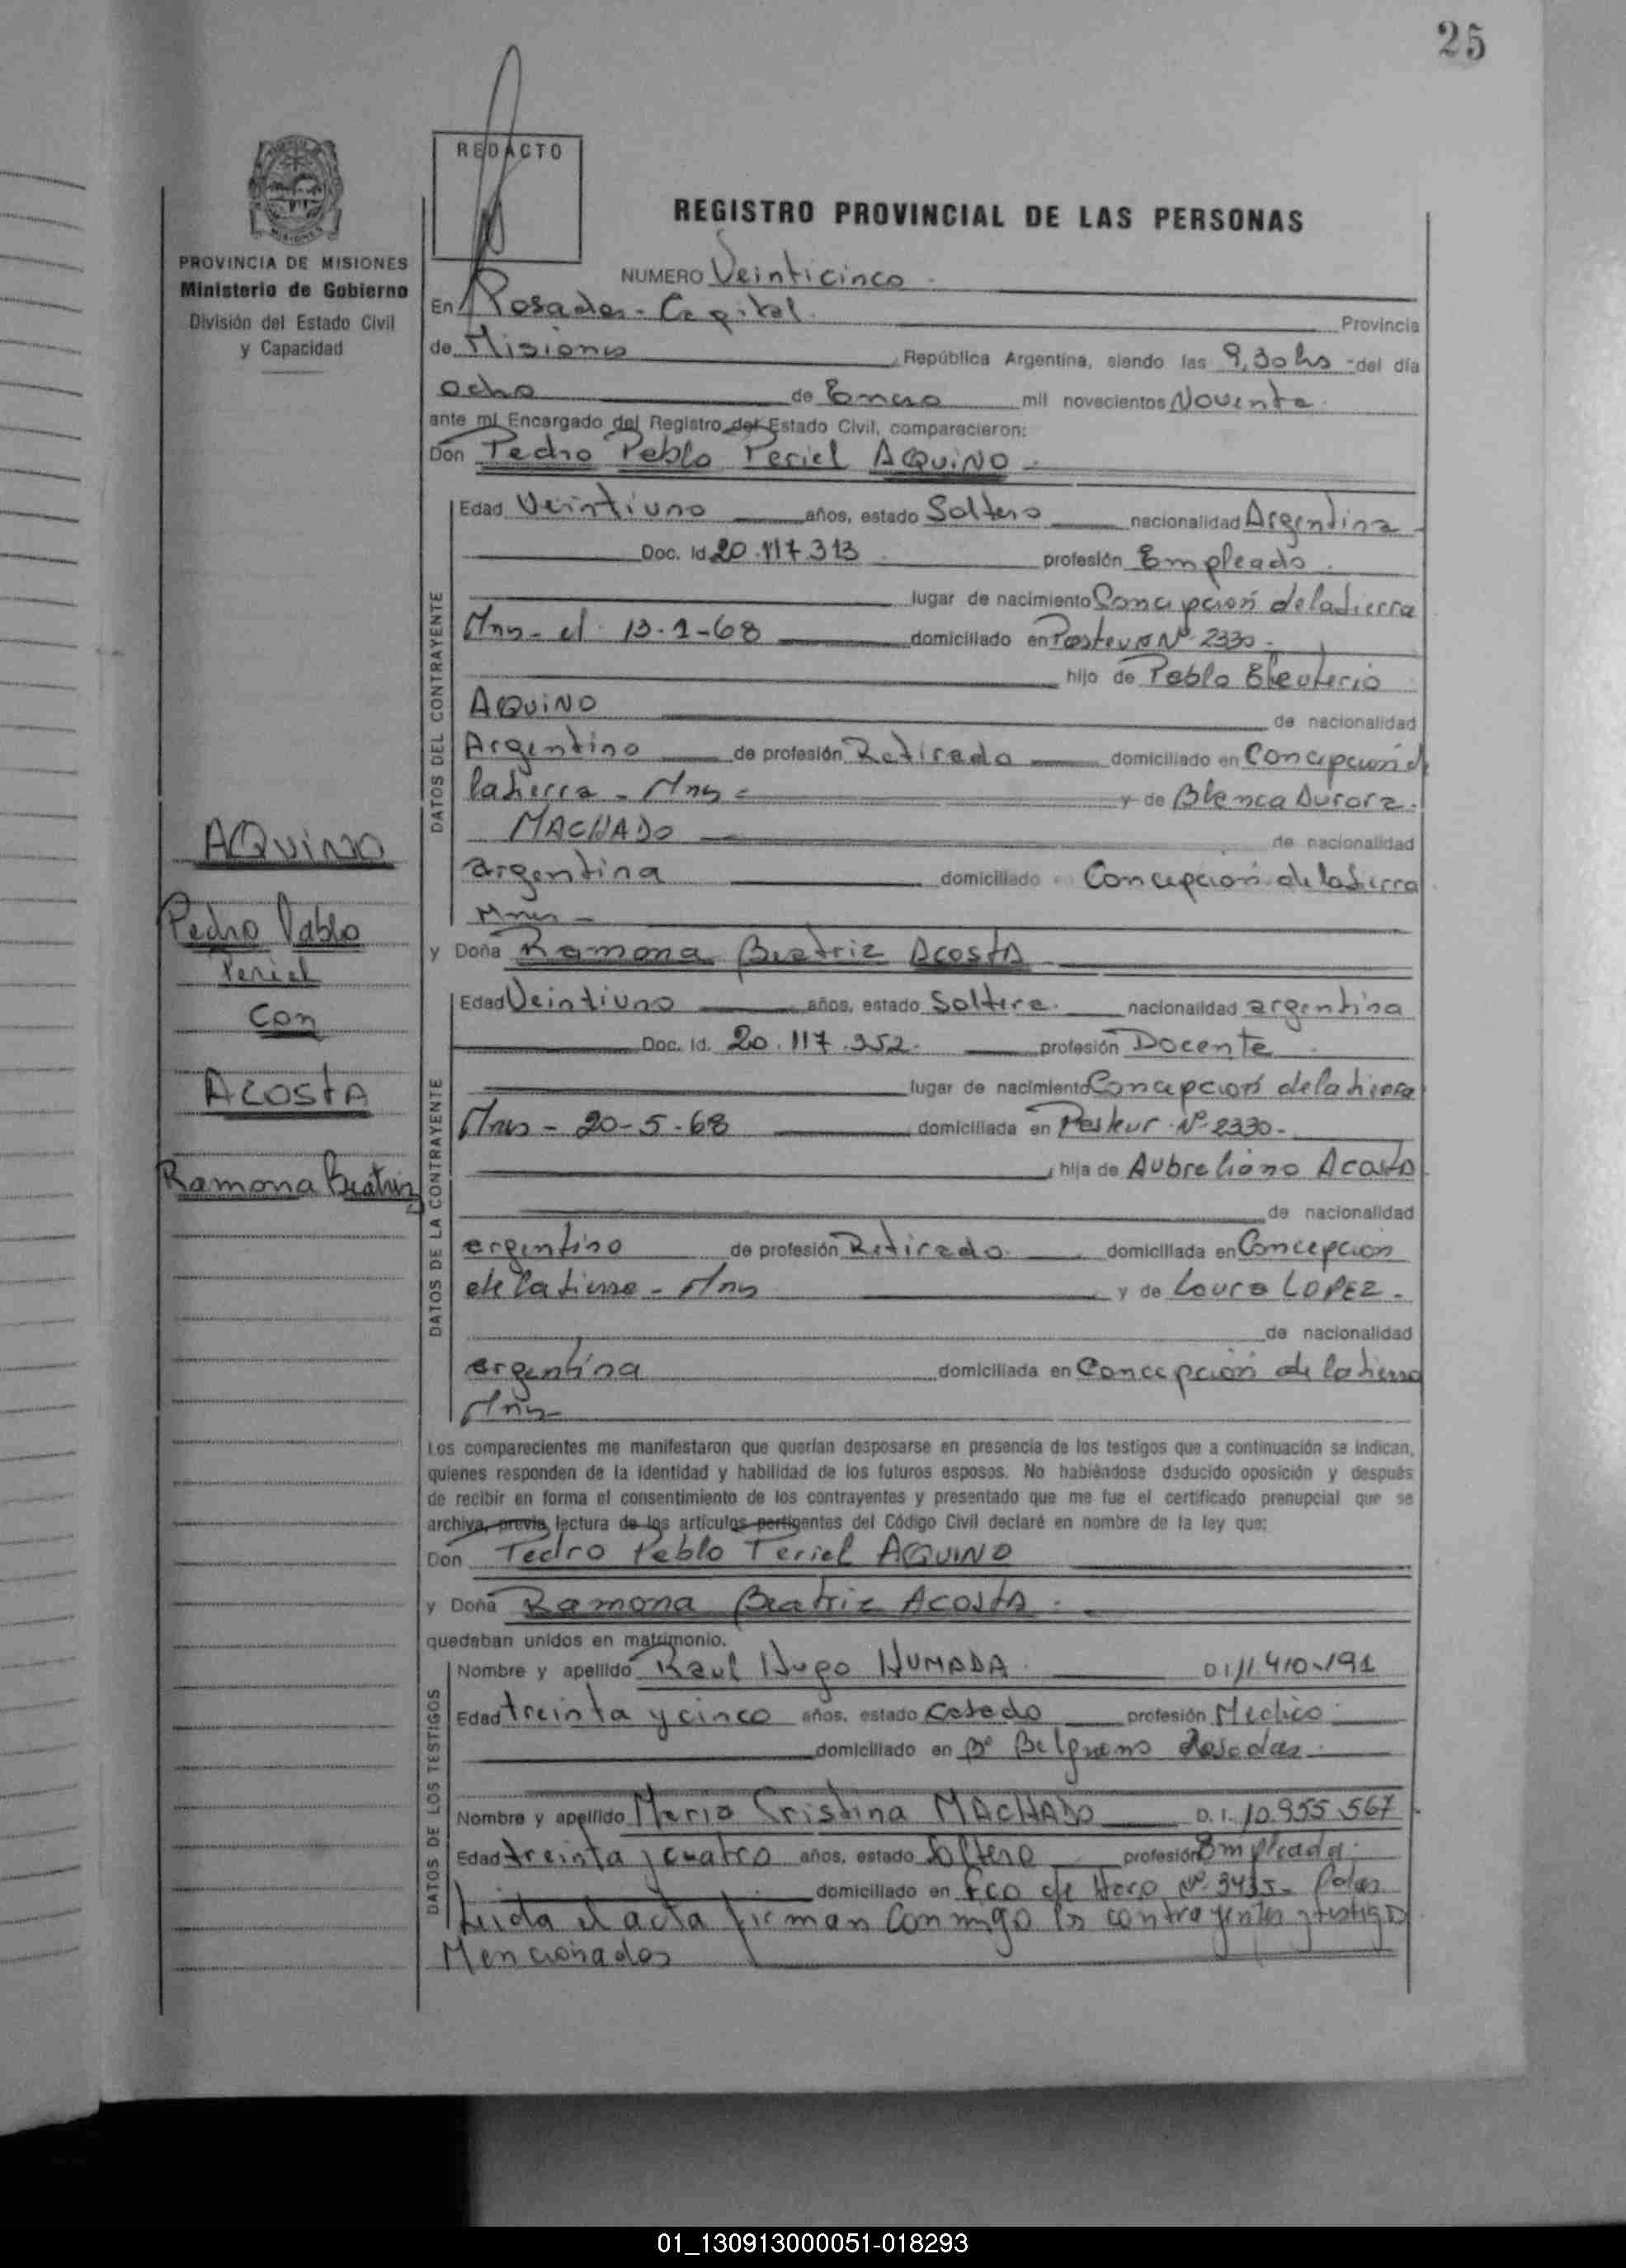 25
REDACTO
REGISTRO PROVINCIAL DE LAS PERSONAS
PROVINCIA DE MISIONES
Ministerio de Gobierno
División del Estado Civil
y Capacidad
NUMERO Veinticinco
En Posadas - Capital Provincia
de Misiones República Argentina, siendo las 9,30 hs del día
ocho de Enero mil novecientos Noventa
ante mi Encargado del Registro del Estado Civil, comparecieron:
Don Pedro Pablo Periel AQUINO
DATOS DEL CONTRAYENTE
Edad Veintiuno años, estado Soltero nacionalidad Argentina
Doc. Id 20.117.313 profesión Empleado
lugar de nacimiento Concepción de la Sierra
Mns - el 13-1-68 domiciliado en Nº 2330
hijo de Pablo Eleuterio
AQUINO de nacionalidad
Argentino de profesión Retirado domiciliado en Concepción d
la sierra - Mns y de Blanca Aurora
MACHADO de nacionalidad
argentina domiciliado Concepción de la Sierra
Mns -
y Doña Ramona Beatriz ACOSTA
DATOS DE LA CONTRAYENTE
Edad Veintiuno años, estado Soltera nacionalidad argentina
Doc. Id. 20.117.352 profesión Docente
lugar de nacimiento Concepción de la sierra
Mns - 20-5-68 domiciliada en Pasteur Nº 2330 -
hija de Aubreliano Acosta
de nacionalidad
argentino de profesión Retirado domiciliada en Concepción
de la sierra - Mns y de Laura LOPEZ -
de nacionalidad
argentina domiciliada en Concepción de la sierra
Mns
AQUINO
Pedro Pablo
Periel
Con
ACOSTA
Ramona Beatriz
Los comparecientes me manifestaron que querían desposarse en presencia de los testigos que a continuación se indican,
quienes responden de la identidad y habilidad de los futuros esposos. No habiéndose deducido oposición y después
de recibir en forma el consentimiento de los contrayentes y presentado que me fue el certificado prenupcial que se
archiva, previa lectura de los artículos pertigentes del Código Civil declaré en nombre de la ley que:
Don Pedro Pablo Periel AQUINO
y Doña Ramona Beatriz ACOSTA
quedaban unidos en matrimonio.
DATOS DE LOS TESTIGOS
Nombre y apellido Raul Hugo HUMADA
Edad treinta y cinco años, estado Casado profesión Medico
domiciliado en Bº Belgrano Posadas
Nombre y apellido Maria Cristina MACHADO D.I. 10.955.567
Edad treinta y cuatro años, estado Soltera profesión Empleada
domiciliado en Fco de Haro Nº Pdas
Leida el acta firman conmigo los contrayentes y testigos
Mencionados
01_130913000051-018293